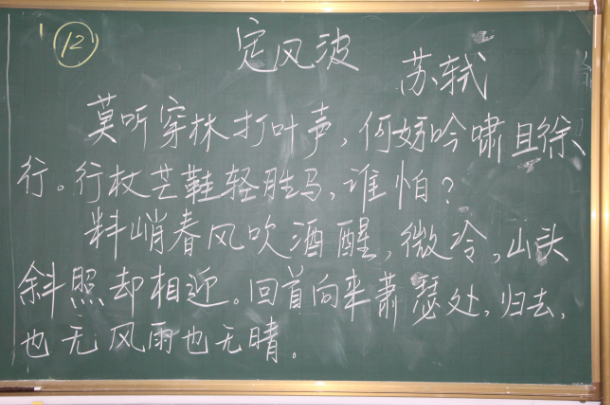 12
定风波
苏轼
莫听穿林打叶声,何妨吟啸且徐
行。行杖芒鞋轻胜马,谁怕?
料峭春风吹酒醒,微冷,山头
斜照却相迎。回首向来萧瑟处,归去,
也无风雨也无晴。